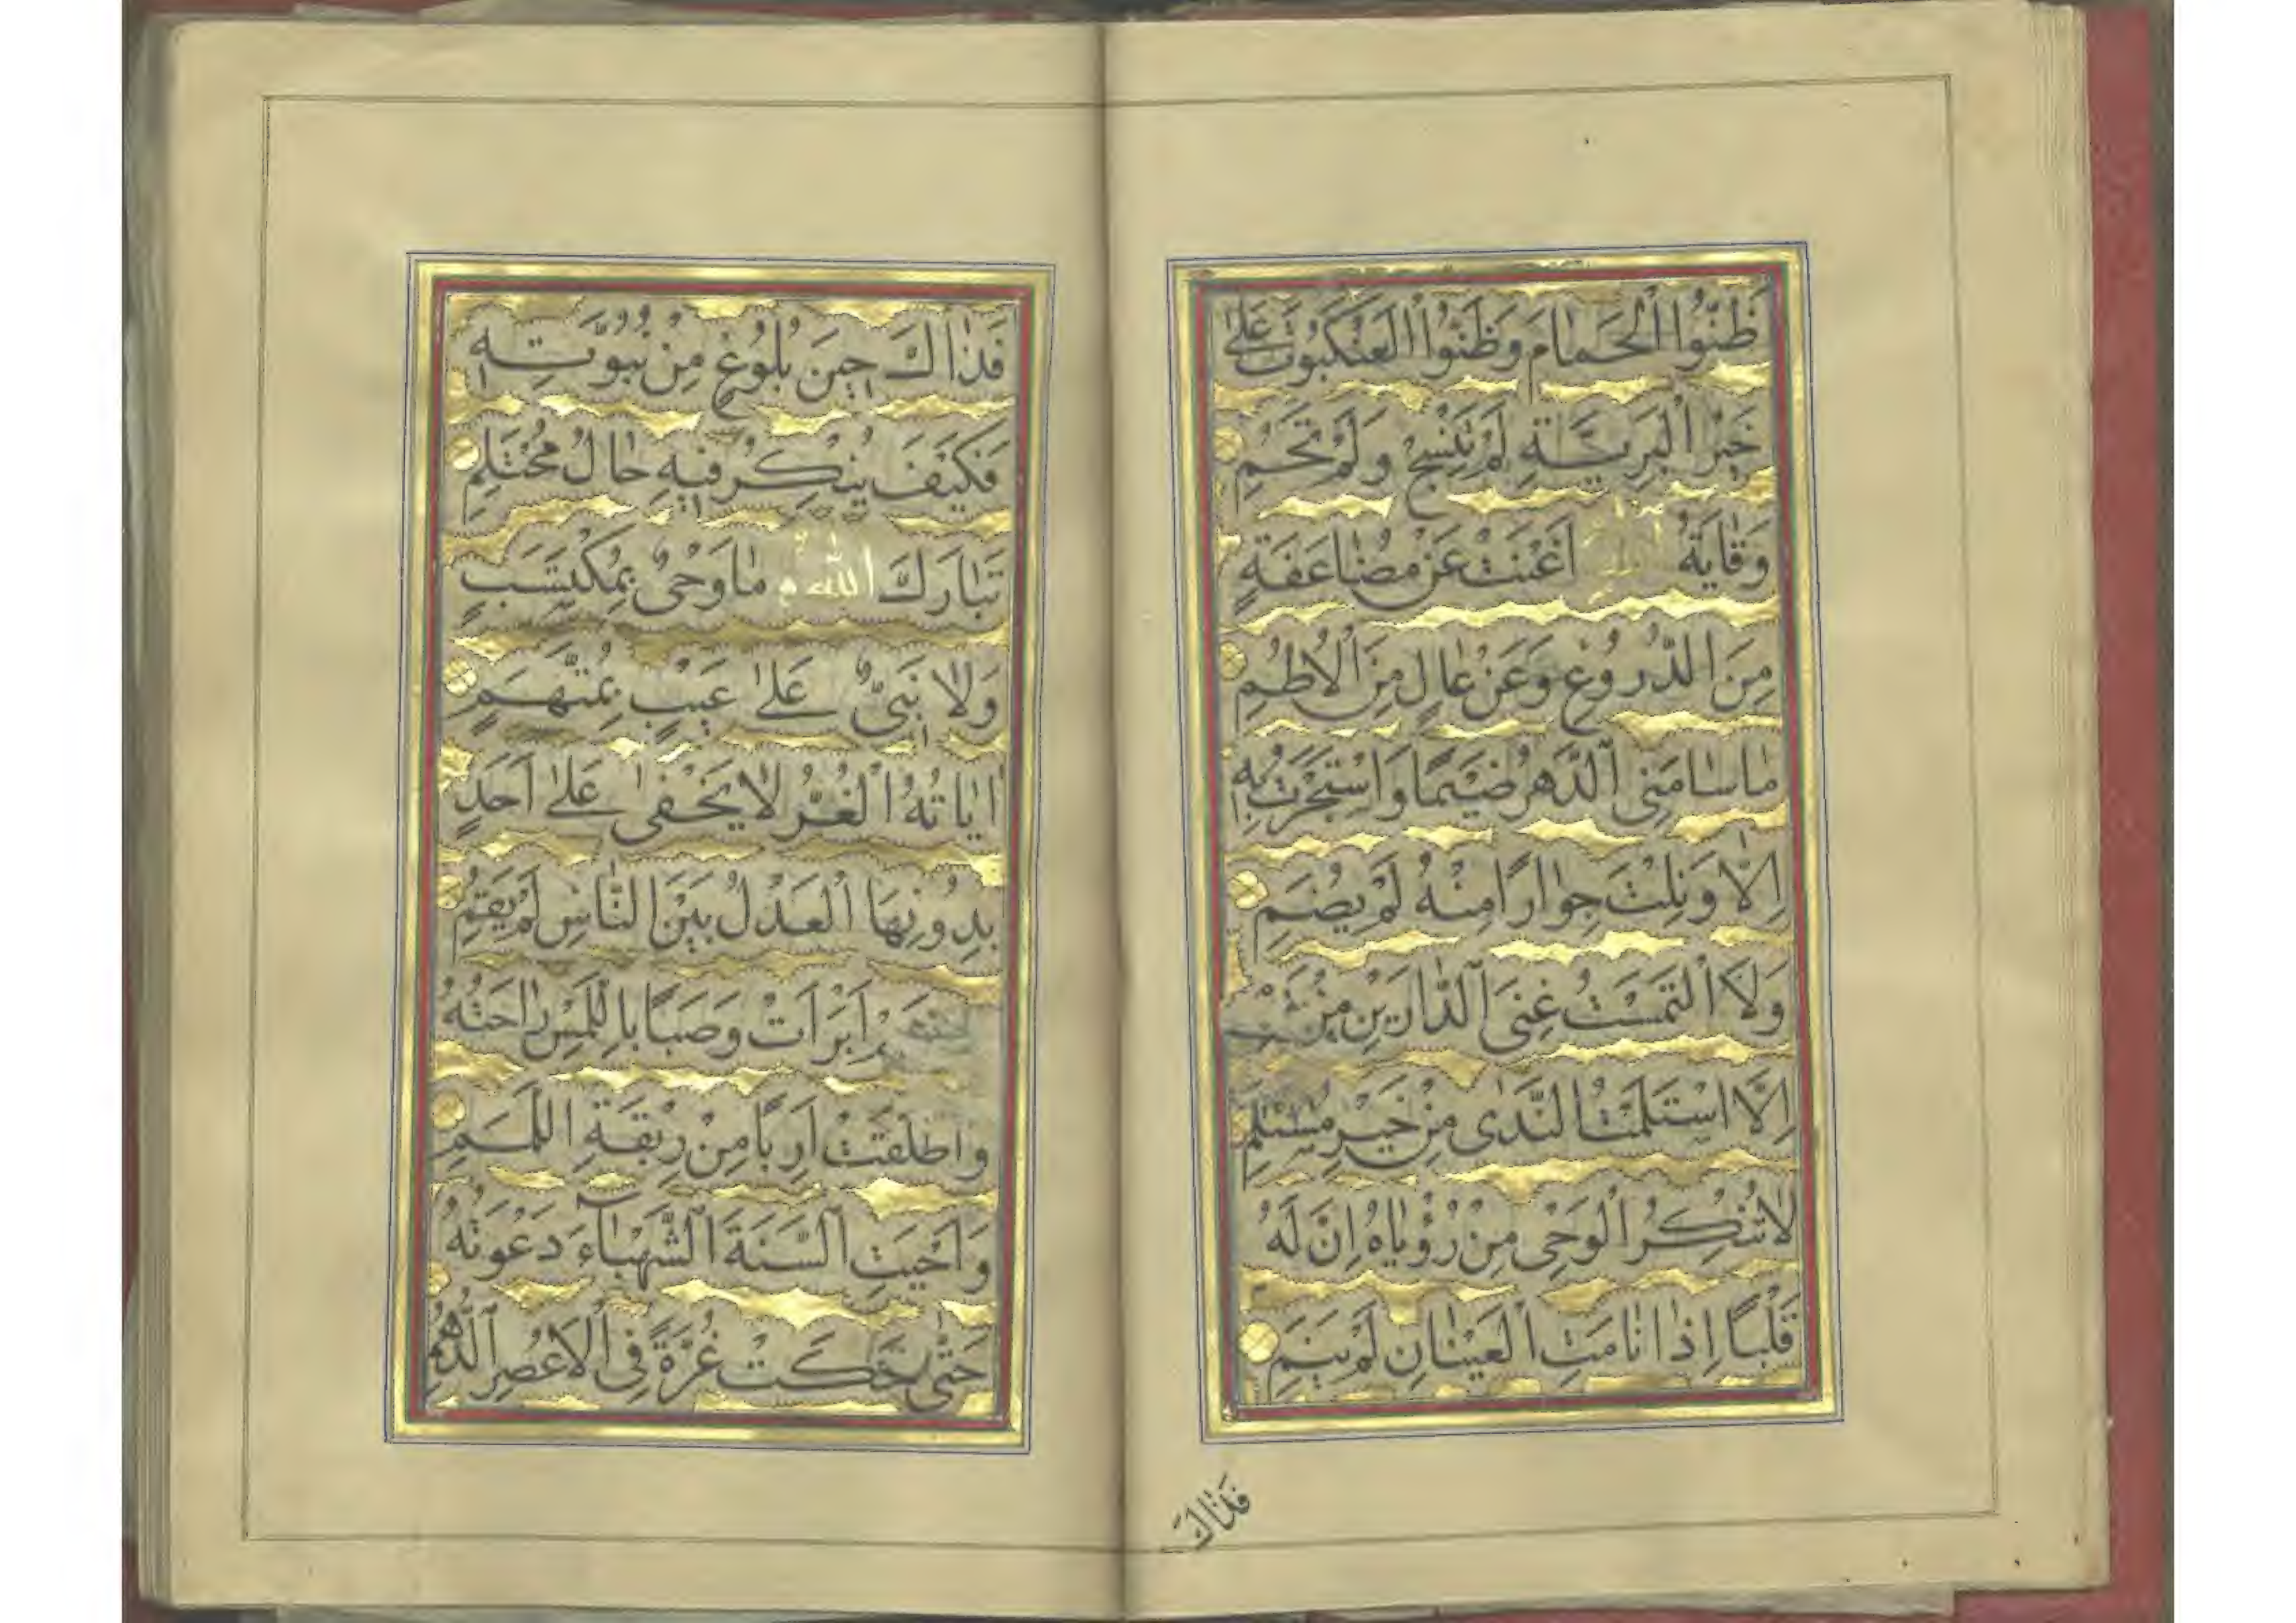 ظَنُّوا الْحَمَامَ وَظَنُّوا الْعَنْكَبُوتَ عَلٰى
خَيْرِ الْبَرِيَّةِ لَمْ تَنْسِجْ وَلَمْ تَحُمِ
وَقَايَةُ اللّٰهِ اَغْنَتْ عَنْ مُضَاعَفَةٍ
مِنَ الدُّرُوعِ وَعَنْ عَالٍ مِنَ الْاُطُمِ
مَا سَامَنِى الدَّهْرُ ضَيْمًا وَاسْتَجَرْتُ بِهِ
اِلَّا وَنِلْتُ جِوَارًا مِنْهُ لَمْ يُضَمِ
وَلَا الْتَمَسْتُ غِنَى الدَّارَيْنِ مِنْ
اِلَّا اسْتَلَمْتُ النَّدٰى مِنْ خَيْرِ مُسْتَلَمِ
لَا تُنْكِرُ الْوَحْىَ مِنْ رُؤْيَاهُ اِنَّ لَهُ
قَلْبًا اِذَا نَامَتِ الْعَيْنَانِ لَمْ يَنَمِ
فَذَاكَ
فَذَاكَ حِينَ بُلُوغٍ مِنْ نُبُوَّتِهِ
فَكَيْفَ يُنْكَرُ فِيهِ حَالُ مُحْتَلِمِ
تَبَارَكَ اللّٰهُ مَا وَحْىٌ بِمُكْتَسَبٍ
وَلَا نَبِىٌّ عَلٰى غَيْبٍ بِمُتَّهَمِ
اٰيَاتُهُ الْغُرُّ لَا يَخْفٰى عَلٰى اَحَدٍ
بِدُونِهَا الْعَدْلُ بَيْنَ النَّاسِ لَمْ يَقُمِ
اَبْرَاَتْ وَصَبًا بِاللَّمْسِ رَاحَتُهُ
وَاَطْلَقَتْ اَرِبًا مِنْ رِبْقَةِ اللَّمَمِ
وَاَحْيَتِ السَّنَةَ الشَّهْبَاءَ دَعْوَتُهُ
حَتّٰى حَكَتْ غُرَّةً فِى الْاَعْصُرِ الدُّهُمِ